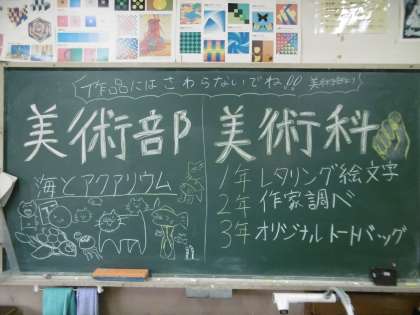 作品にはさわらないでね!!
美術部
海とアクアリウム
美術科
1年 レタリング・絵文字
2年 作家調べ
3年 オリジナルトートバッグ